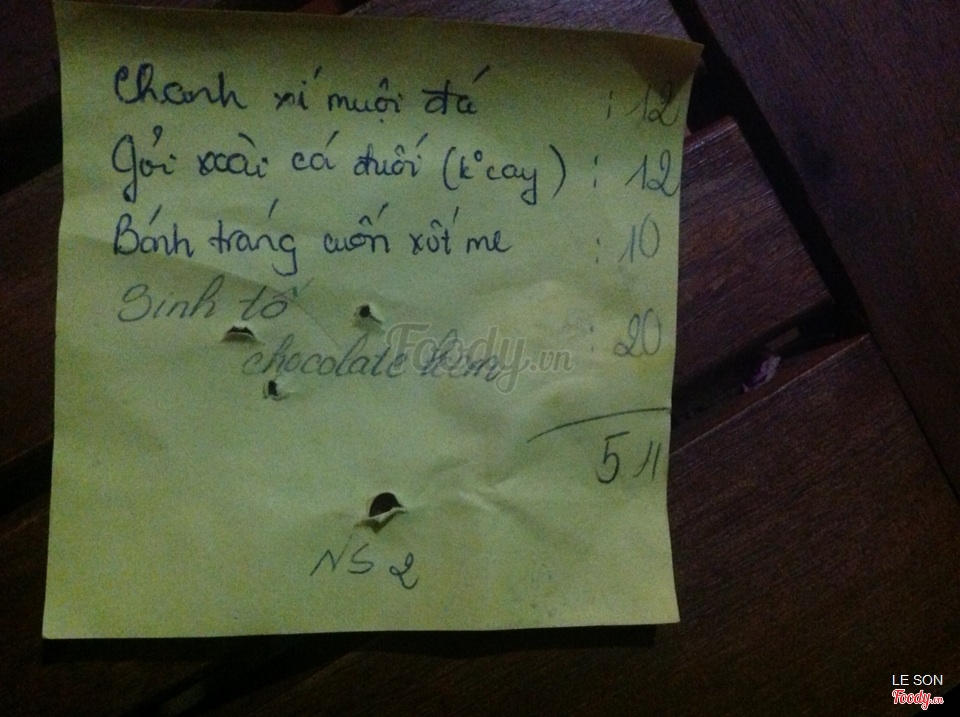 Chanh xí muội đá : 12
Gỏi xoài cá đuối (k° cay) : 12
Bánh tráng cuốn xốt me : 10
Sinh tố
chocolate kem : 20
54
NS 2
Foody.vn
LE SON
Foody.vn